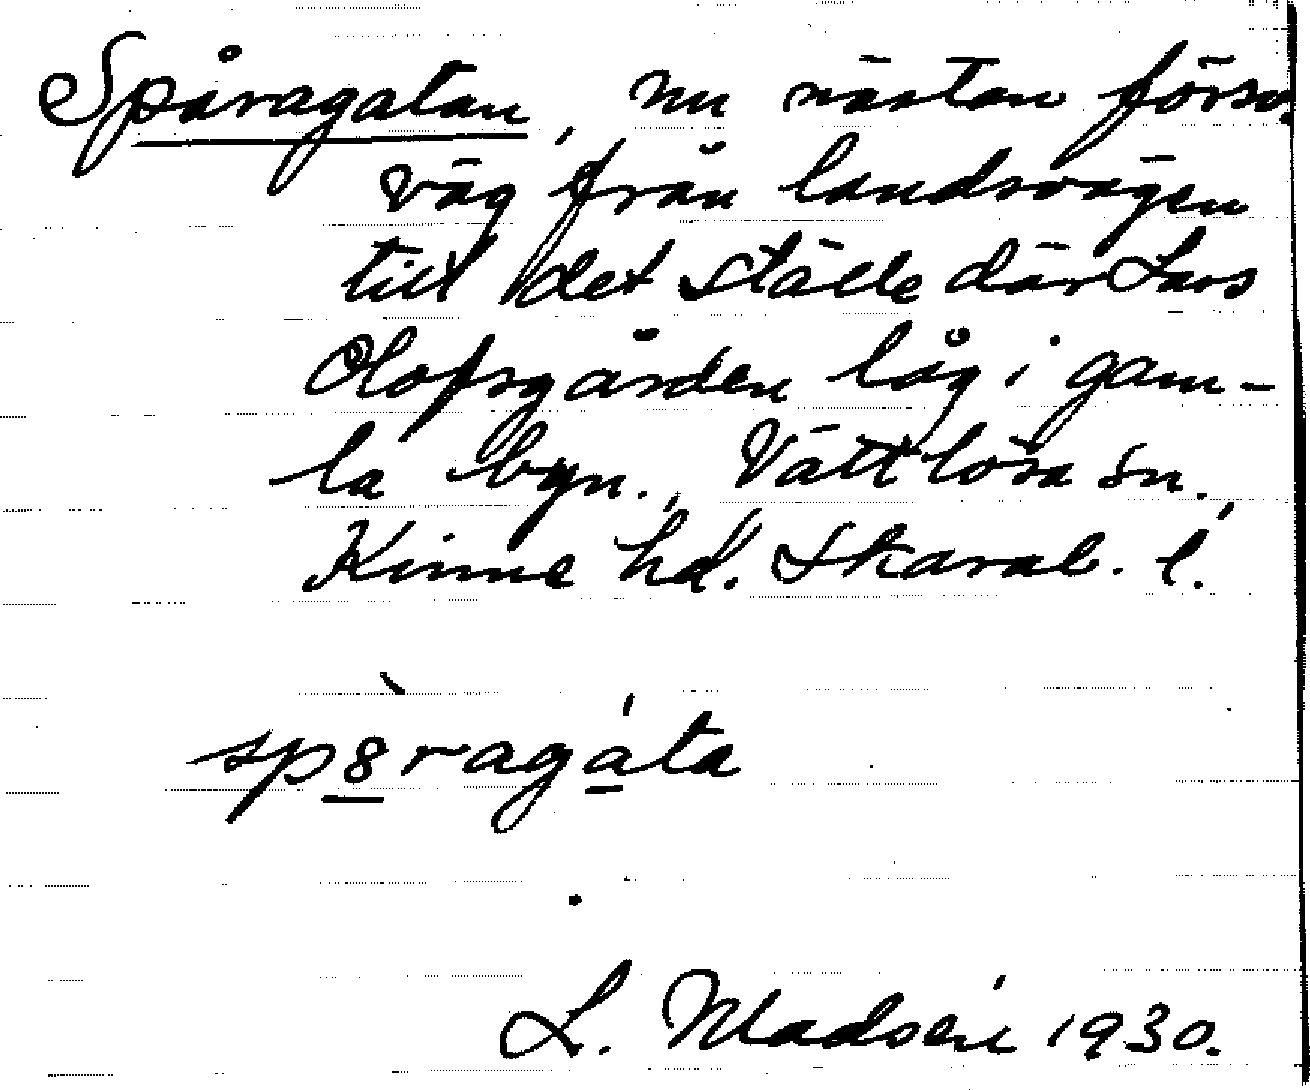 Spåragatan, nu nästan försv.
väg från landsvägen
till det ställe där Lars
Olofsgården låg i gam-
la byn. Vättlösa sn.,
Kinne hd. Skarab. l.
sp8̀ragáta
L. Madsén 1930.